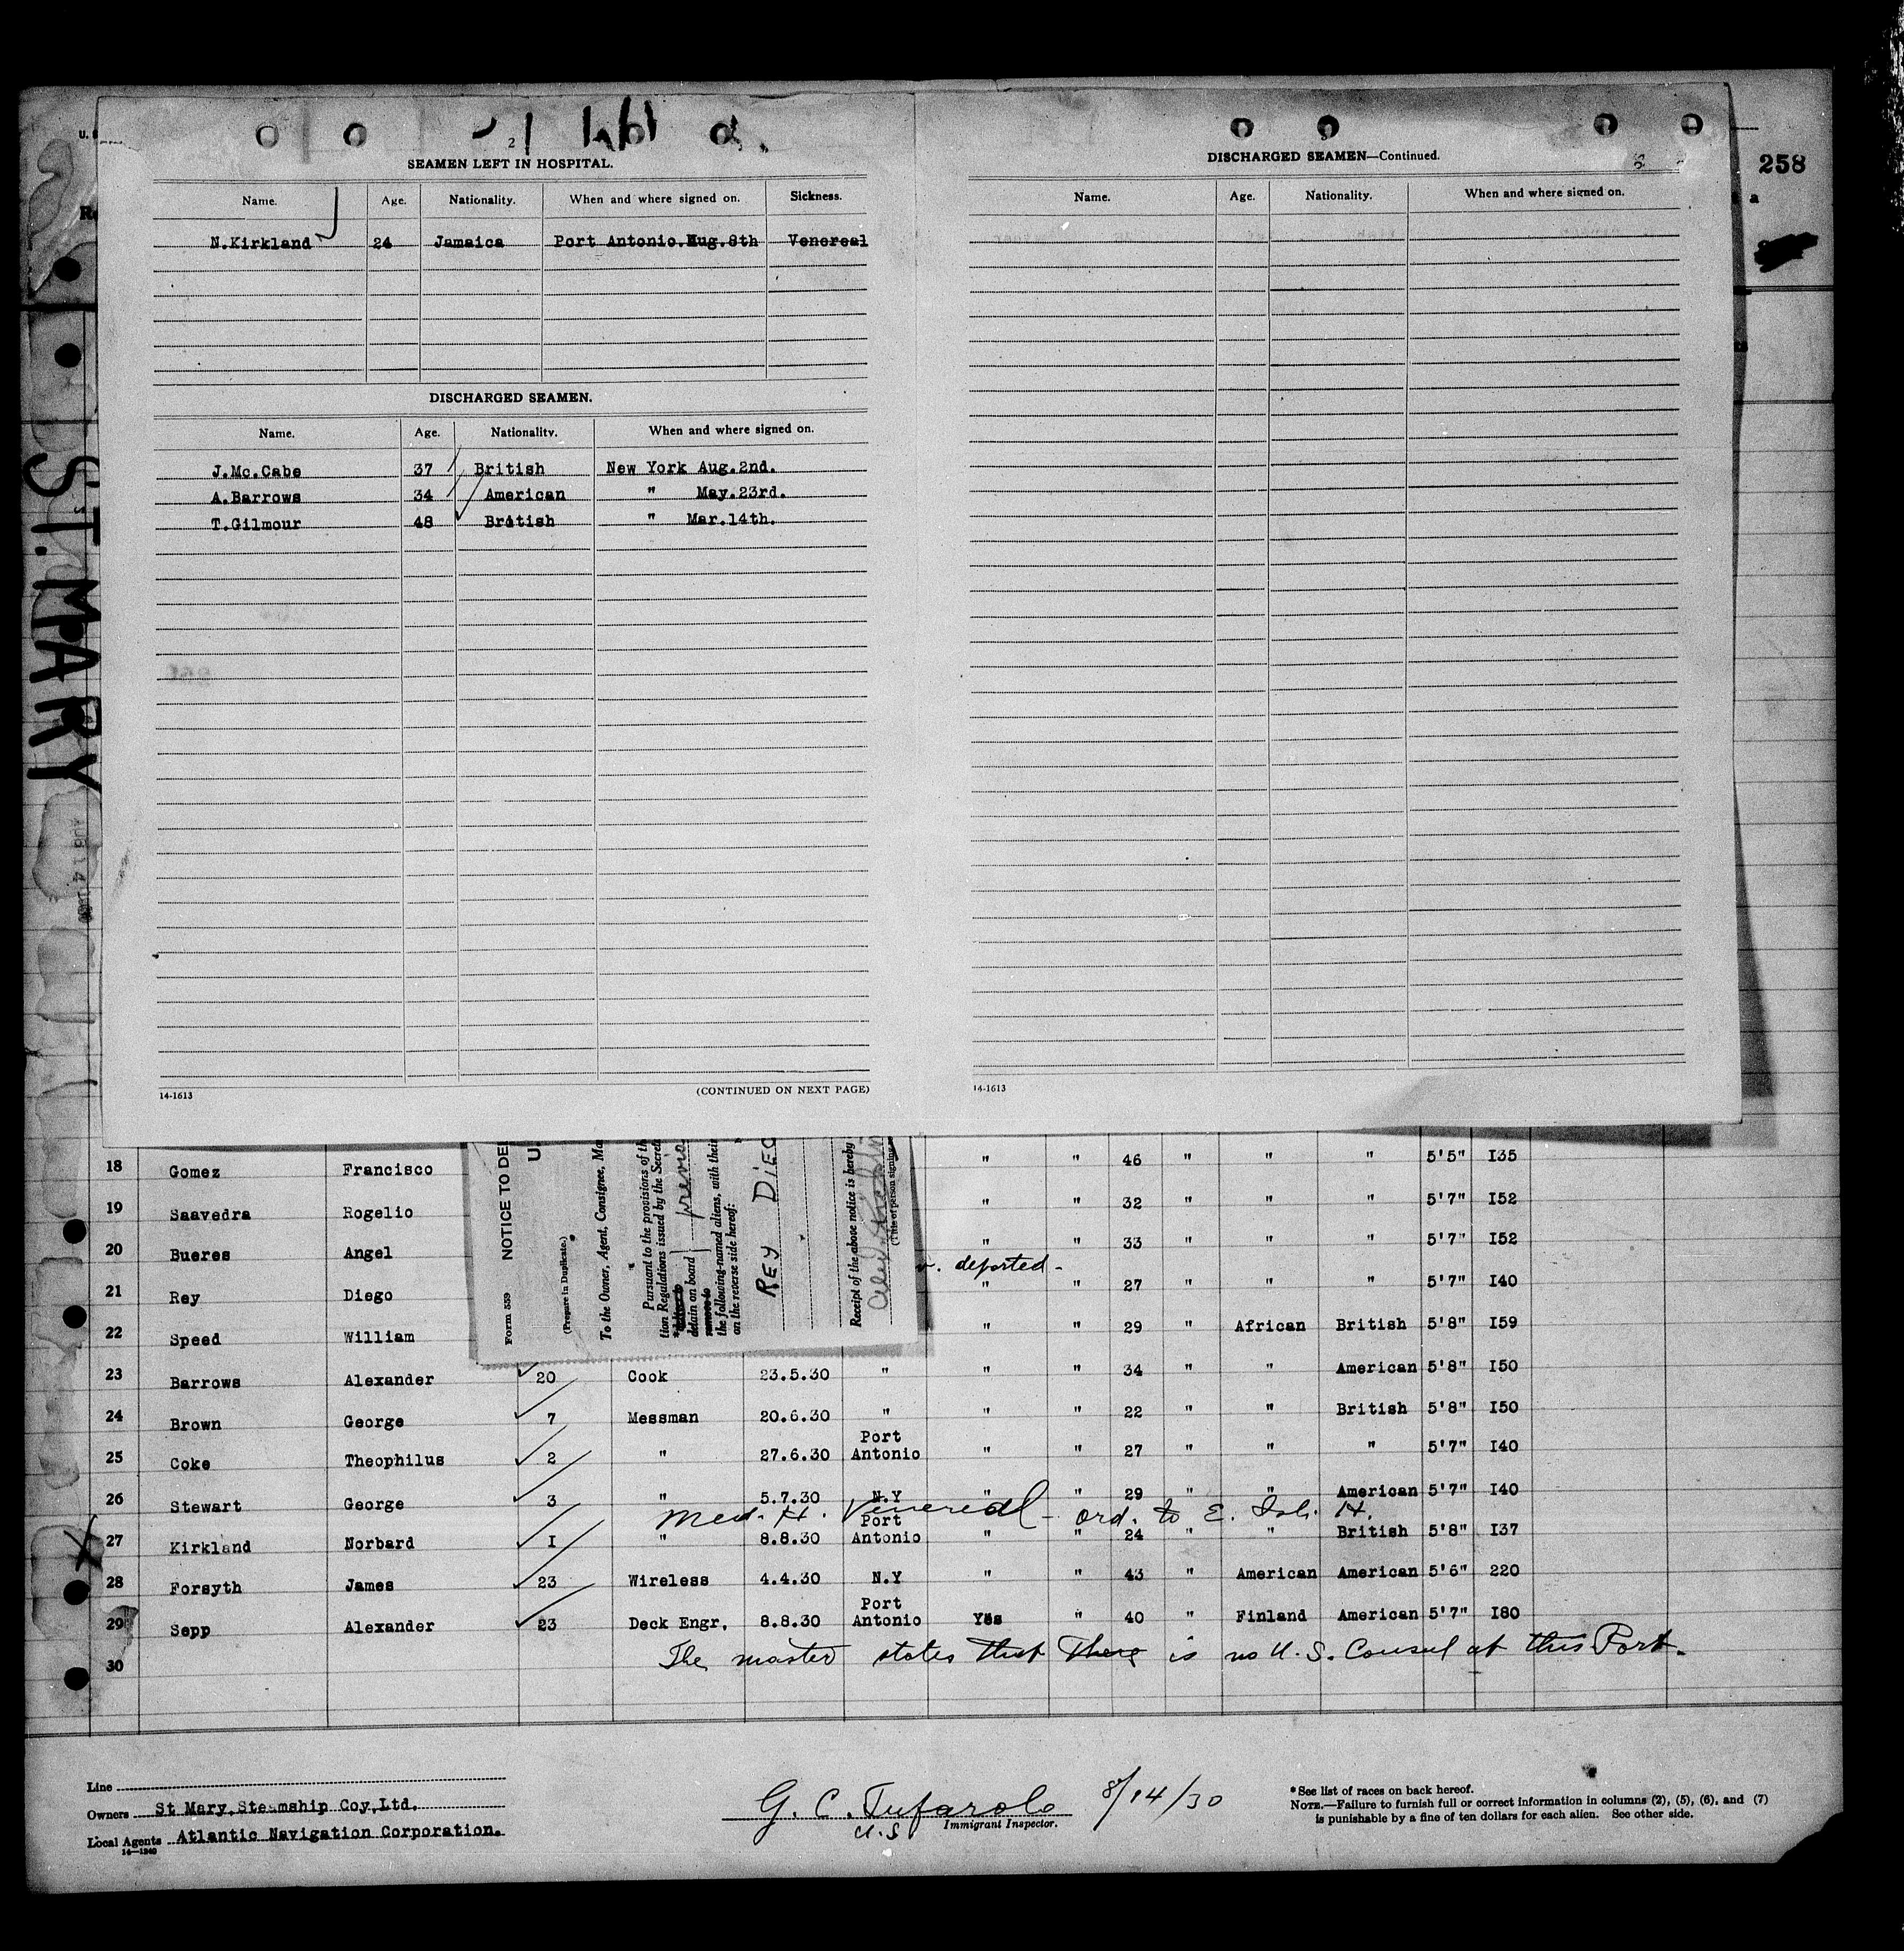 258
2
SEAMEN LEFT IN HOSPITAL.
Name. Age. Nationality. When and where signed on. Sickness.
N.Kirkland 24 Jamaica Port Antonio. Aug.8th Venereal
DISCHARGED SEAMEN.
Name. Age. Nationality. When and where signed on.
J.Mc.Cabe 37 British New York Aug.2nd.
A.Barrows 34 American " May.23rd.
T.Gilmour 48 British " Mar.14th.
14-1613 (CONTINUED ON NEXT PAGE)
DISCHARGED SEAMEN—Continued.
3
Name. Age. Nationality. When and where signed on.
14-1613
ST. MARY
AUG 14
18 Gomez Francisco " " 46 " " " 5'5" I35
19 Saavedra Rogelio " " 32 " " " 5'7" I52
20 Bueres Angel " " 33 " " " 5'7" I52
deported -
21 Rey Diego " " 27 " " " 5'7" I40
22 Speed William " " 29 " African British 5'8" I59
23 Barrows Alexander 20 Cook 23.5.30 " " " 34 " " American 5'8" I50
24 Brown George 7 Messman 20.6.30 " " " 22 " " British 5'8" I50
25 Coke Theophilus 2 " 27.6.30 Port Antonio " " 27 " " " 5'7" I40
26 Stewart George 3 " 5.7.30 N.Y " " 29 " " American 5'7" I40
Med. H. Venereal - ord. to E. Isl. H.
27 Kirkland Norbard I " 8.8.30 Port Antonio " " 24 " " British 5'8" I37
28 Forsyth James 23 Wireless 4.4.30 N.Y " " 43 " American American 5'6" 220
29 Sepp Alexander 23 Deck Engr. 8.8.30 Port Antonio Yes " 40 " Finland American 5'7" I80
30 The master states that there is no U.S. Consul at this Port.
Form 559 NOTICE TO DE
U.
(Prepare in Duplicate.)
To the Owner, Agent, Consignee, Ma
Pursuant to the provisions of th
tion Regulations issued by the Secret
detain on board previo
remove to
the following-named aliens, with thei
on the reverse side hereof:
REY DIEG
Receipt of the above notice is hereby
(Title of person signing
Line
Owners St Mary.Steamship Coy,Ltd.
Local Agents Atlantic Navigation Corporation.
14—1240
G. C. Tufarolo 8/14/30
U.S. Immigrant Inspector.
* See list of races on back hereof.
NOTE.—Failure to furnish full or correct information in columns (2), (5), (6), and (7)
is punishable by a fine of ten dollars for each alien. See other side.